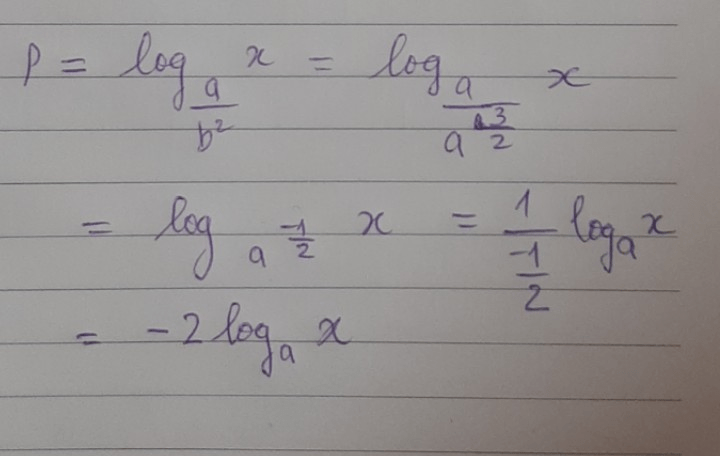 P = log_{a/b^2} x = log_{a/a^{3/2}} x
= log_{a^{-1/2}} x = 1/(-1/2) log_a x
= -2 log_a x